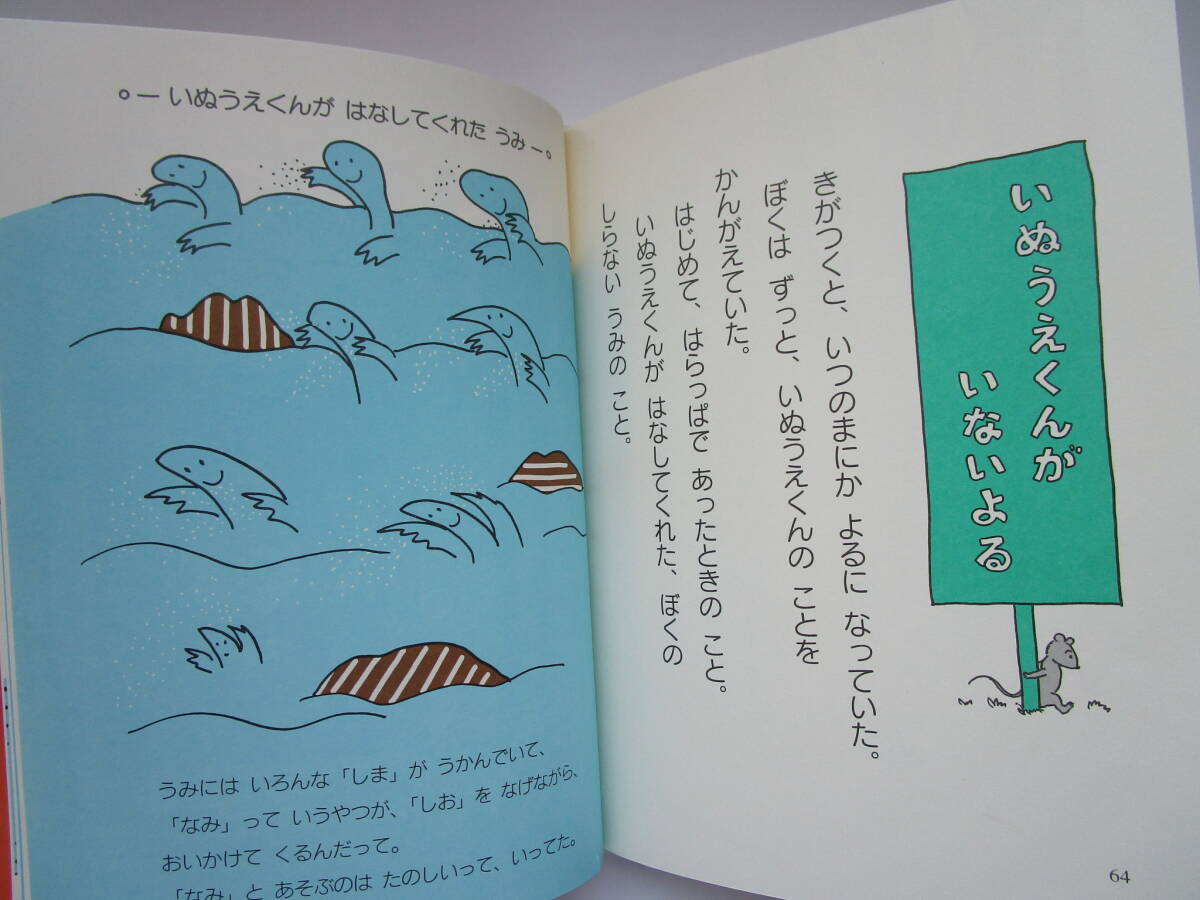 いぬうえくんが
いないよる
きがつくと、いつのまにか よるに なっていた。
ぼくは ずっと、いぬうえくんの ことを
かんがえていた。
はじめて、はらっぱで あったときの こと。
いぬうえくんが はなしてくれた、ぼくの
しらない うみの こと。
64
。ー いぬうえくんが はなしてくれた うみ ー。
うみには いろんな「しま」が うかんでいて、
「なみ」って いうやつが、「しお」を なげながら、
おいかけて くるんだって。
「なみ」と あそぶのは たのしいって、いってた。